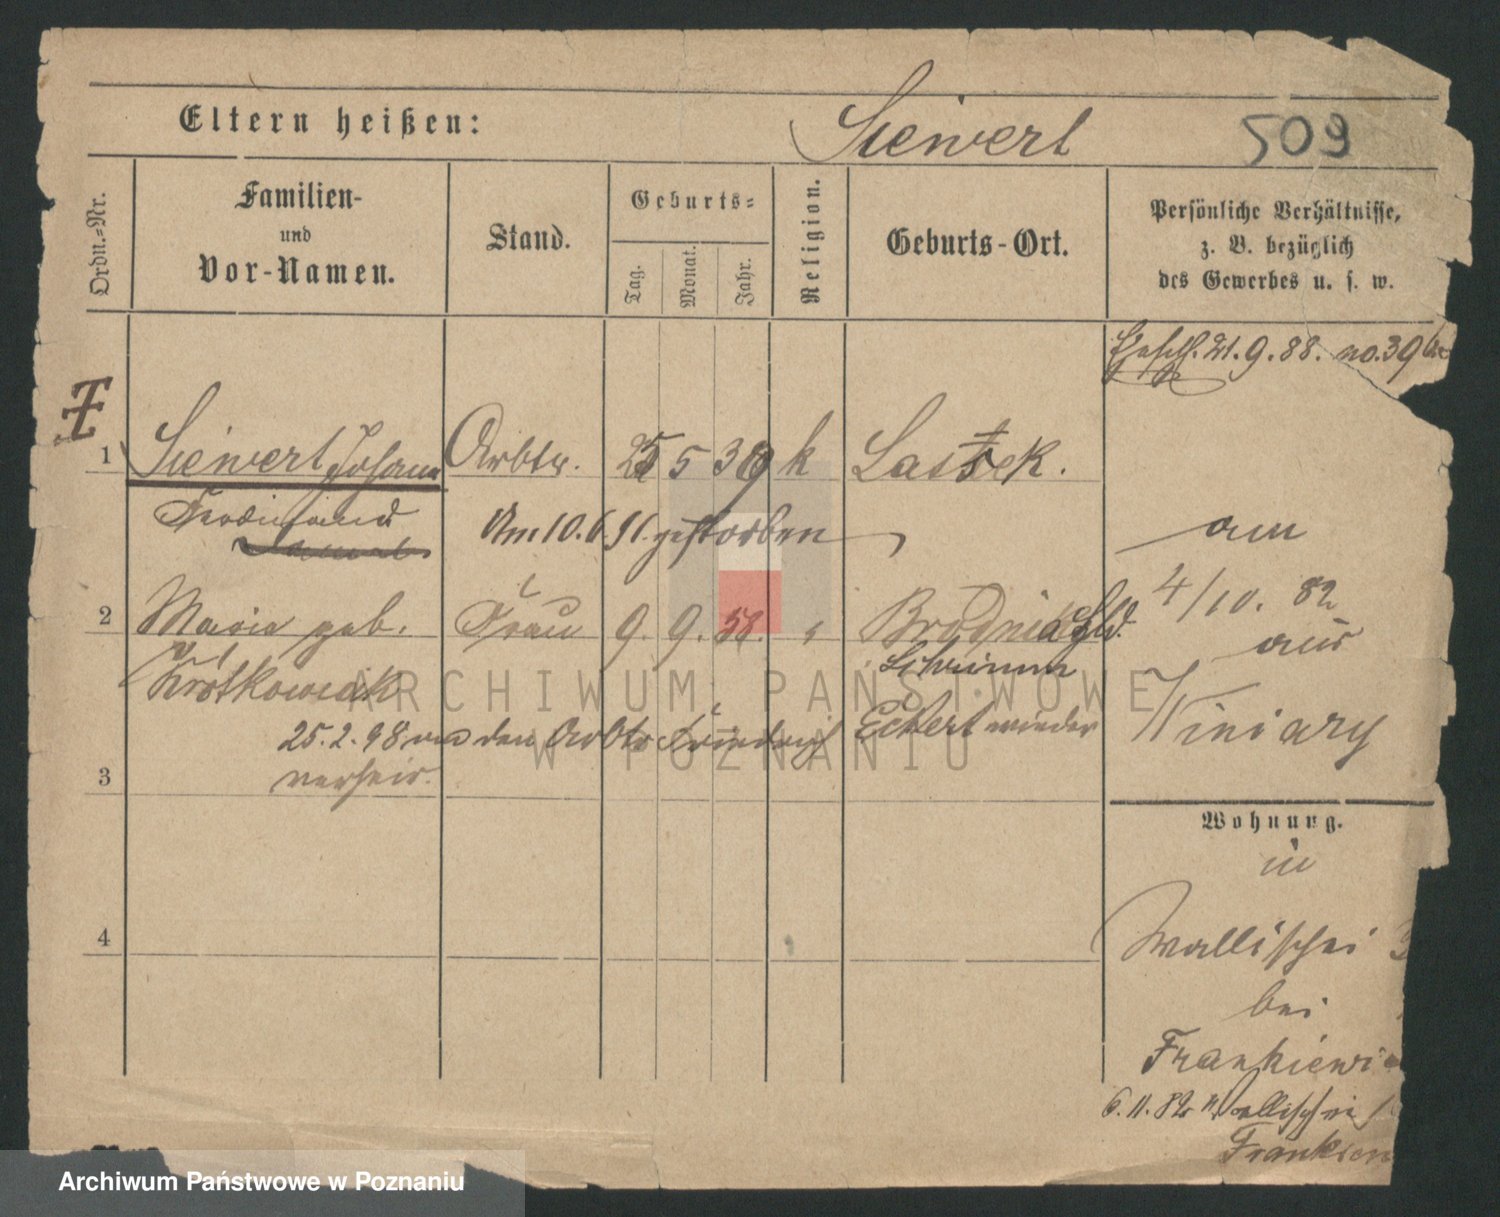 Eltern heißen:
Siewert
509
Ordn.-Nr.
Familien-
und
Vor-Namen.
Stand.
Geburts-
Tag.
Monat.
Jahr.
Religion.
Geburts-Ort.
Persönliche Verhältnisse,
z. B. bezüglich
des Gewerbes u. s. w.
21.9.88. no. 39
1 Siewert Johann Arbtr. 25 5 39 k Lassek.
Ferdinand
Am 10.6.91. gestorben
am
4/10. 82
aus
Winiary
2 Maria geb. Frau 9. 9. 58. " Brodnica
Schrimm
Krotkowiak
25.2.98 den Arbtr Friedrich Eckert wieder
verheir.
3
Wohnung.
in
Wallischei
bei
Frankiewi
6.11.82 Wallischei
4
ARCHIWUM PAŃSTWOWE
W POZNANIU
Archiwum Państwowe w Poznaniu